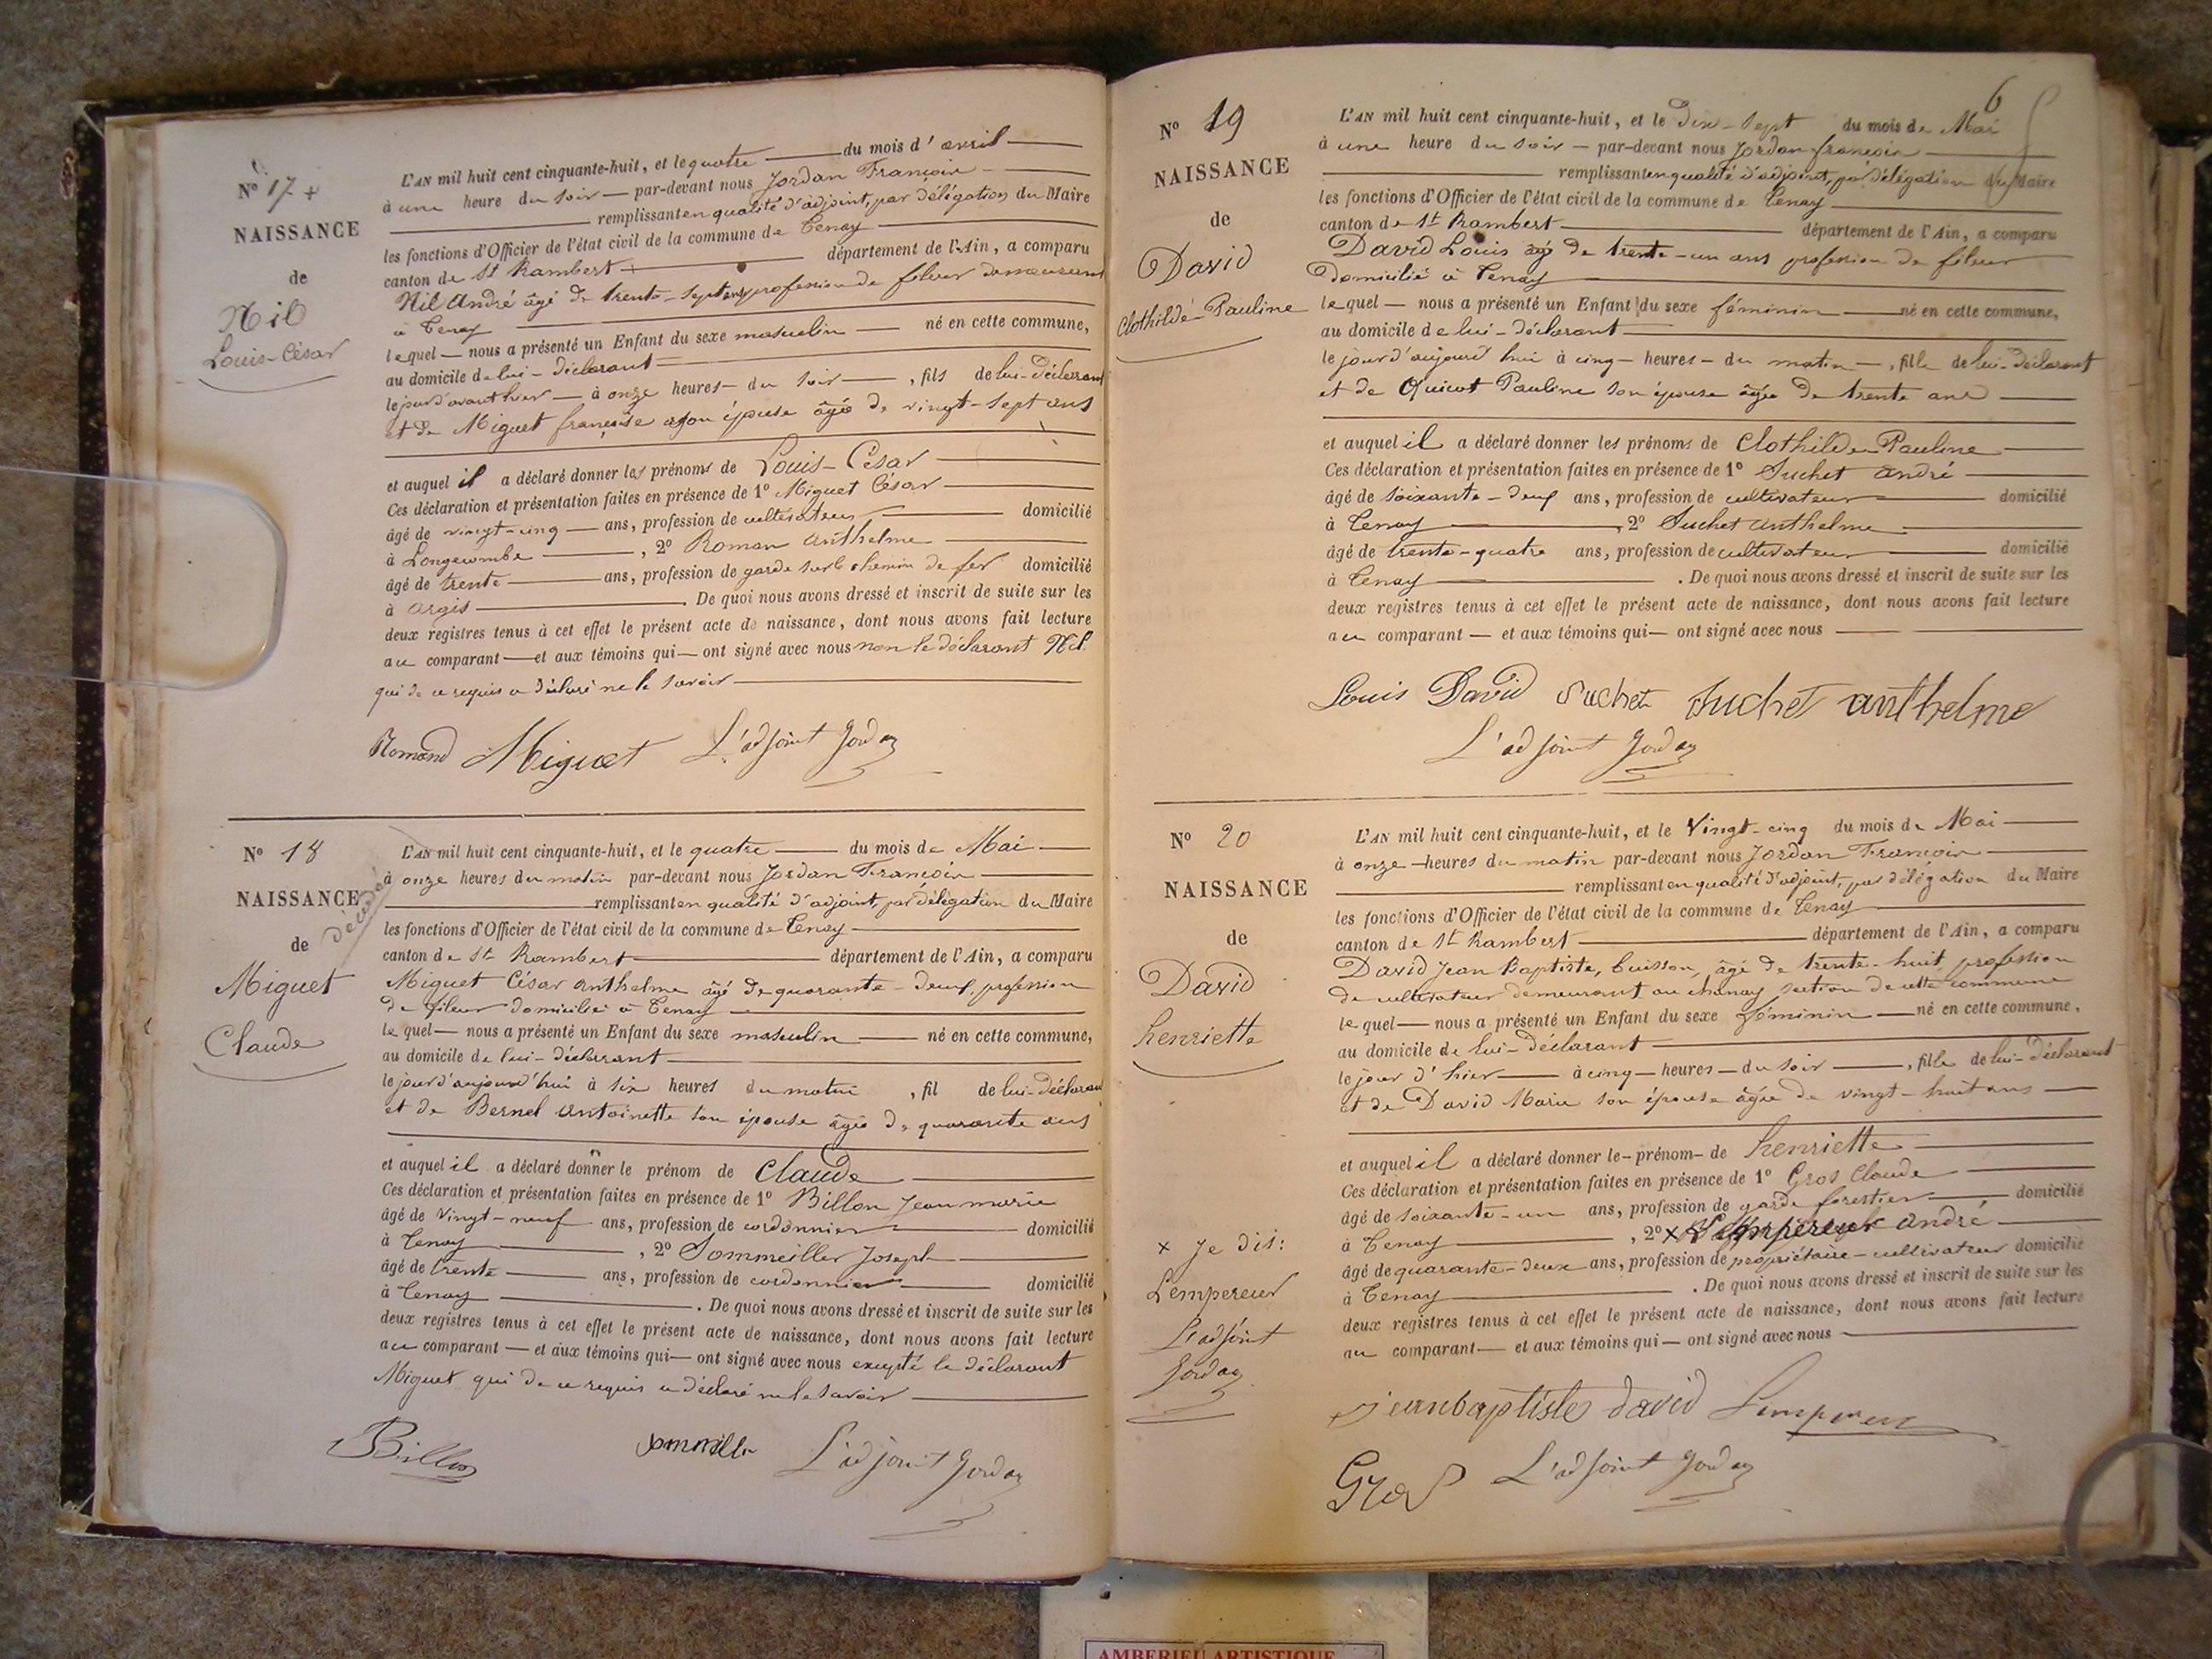 N° 17 +
NAISSANCE
de
Nil
Louis-César
L'AN mil huit cent cinquante-huit, et le quatre du mois d'avril
à une heure du soir par-devant nous Jordan François
remplissant en qualité d'adjoint, par délégation du Maire
les fonctions d'Officier de l'état civil de la commune de Tenay
canton de St Rambert département de l'Ain, a comparu
Nil André âgé de trente-sept ans profession de fileur demeurant
à Tenay
lequel nous a présenté un Enfant du sexe masculin né en cette commune,
au domicile de lui-déclarant
le jour d'avant hier à onze heures du soir, fils de lui-déclarant
et de Miguet françoise son épouse âgée de vingt-sept ans
et auquel il a déclaré donner les prénoms de Louis-César
Ces déclaration et présentation faites en présence de 1° Miguet César
âgé de vingt-cinq ans, profession de cultivateur domicilié
à Longecombe, 2° Roman anthelme
âgé de trente ans, profession de garde sur le chemin de fer domicilié
à Argis. De quoi nous avons dressé et inscrit de suite sur les
deux registres tenus à cet effet le présent acte de naissance, dont nous avons fait lecture
au comparant et aux témoins qui ont signé avec nous non le déclarant Nil
qui de ce requis a déclaré ne le savoir
Romand Miguet L'adjoint Jordan
N° 18
NAISSANCE
de
décédé
Miguet
Claude
L'AN mil huit cent cinquante-huit, et le quatre du mois de Mai
à onze heures du matin par-devant nous Jordan François
remplissant en qualité d'adjoint, par délégation du Maire
les fonctions d'Officier de l'état civil de la commune de Tenay
canton de St Rambert département de l'Ain, a comparu
Miguet César anthelme âgé de quarante-deux, profession
de fileur domicilié à Tenay
lequel nous a présenté un Enfant du sexe masculin né en cette commune,
au domicile de lui-déclarant
le jour d'aujourd'hui à six heures du matin, fil de lui-déclarant
et de Bernel Antoinette son épouse âgée de quarante ans
et auquel il a déclaré donner le prénom de Claude
Ces déclaration et présentation faites en présence de 1° Billon Jean marie
âgé de vingt-neuf ans, profession de cordonnier domicilié
à Tenay, 2° Sommeiller Joseph
âgé de trente ans, profession de cordonnier domicilié
à Tenay. De quoi nous avons dressé et inscrit de suite sur les
deux registres tenus à cet effet le présent acte de naissance, dont nous avons fait lecture
au comparant et aux témoins qui ont signé avec nous excepté le déclarant
Miguet qui de ce requis a déclaré ne le savoir
Billon L'adjoint Jordan
6
N° 19
NAISSANCE
de
David
Clothilde-Pauline
L'AN mil huit cent cinquante-huit, et le dix-sept du mois de Mai
à une heure du soir par-devant nous Jordan françois
remplissant en qualité d'adjoint, par délégation du Maire
les fonctions d'Officier de l'état civil de la commune de Tenay
canton de St Rambert département de l'Ain, a comparu
David Louis âgé de trente-un ans profession de fileur
domicilié à Tenay
lequel nous a présenté un Enfant du sexe féminin né en cette commune,
au domicile de lui-déclarant
le jour d'aujourd'hui à cinq heures du matin, fille de lui-déclarant
et de Quicot Pauline son épouse âgée de trente ans
et auquel il a déclaré donner les prénoms de Clothilde-Pauline
Ces déclaration et présentation faites en présence de 1° Suchet André
âgé de soixante-deux ans, profession de cultivateur domicilié
à Tenay, 2° Suchet anthelme
âgé de trente-quatre ans, profession de cultivateur domicilié
à Tenay. De quoi nous avons dressé et inscrit de suite sur les
deux registres tenus à cet effet le présent acte de naissance, dont nous avons fait lecture
au comparant et aux témoins qui ont signé avec nous
Louis David Suchet Suchet anthelme
L'adjoint Jordan
N° 20
NAISSANCE
de
David
henriette
L'AN mil huit cent cinquante-huit, et le Vingt-cinq du mois de Mai
à onze heures du matin par-devant nous Jordan François
remplissant en qualité d'adjoint, par délégation du Maire
les fonctions d'Officier de l'état civil de la commune de Tenay
canton de St Rambert département de l'Ain, a comparu
David Jean Baptiste, buisson, âgé de trente-huit, profession
de cultivateur demeurant au chanay section de cette commune
lequel nous a présenté un Enfant du sexe féminin né en cette commune,
au domicile de lui-déclarant
le jour d'hier à cinq heures du soir, fille de lui-déclarant
et de David Marie son épouse âgée de vingt-huit ans
et auquel il a déclaré donner le prénom de henriette
Ces déclaration et présentation faites en présence de 1° Gros Claude
âgé de soixante-un ans, profession de garde forestier domicilié
à Tenay, 2° x Lempereur andré
âgé de quarante-deux ans, profession de propriétaire-cultivateur domicilié
à Tenay. De quoi nous avons dressé et inscrit de suite sur les
deux registres tenus à cet effet le présent acte de naissance, dont nous avons fait lecture
au comparant et aux témoins qui ont signé avec nous
x Je dis:
Lempereur
L'adjoint
Jordan
jean baptiste david Lempereur
Gros L'adjoint Jordan
AMBERIEU ARTISTIQUE